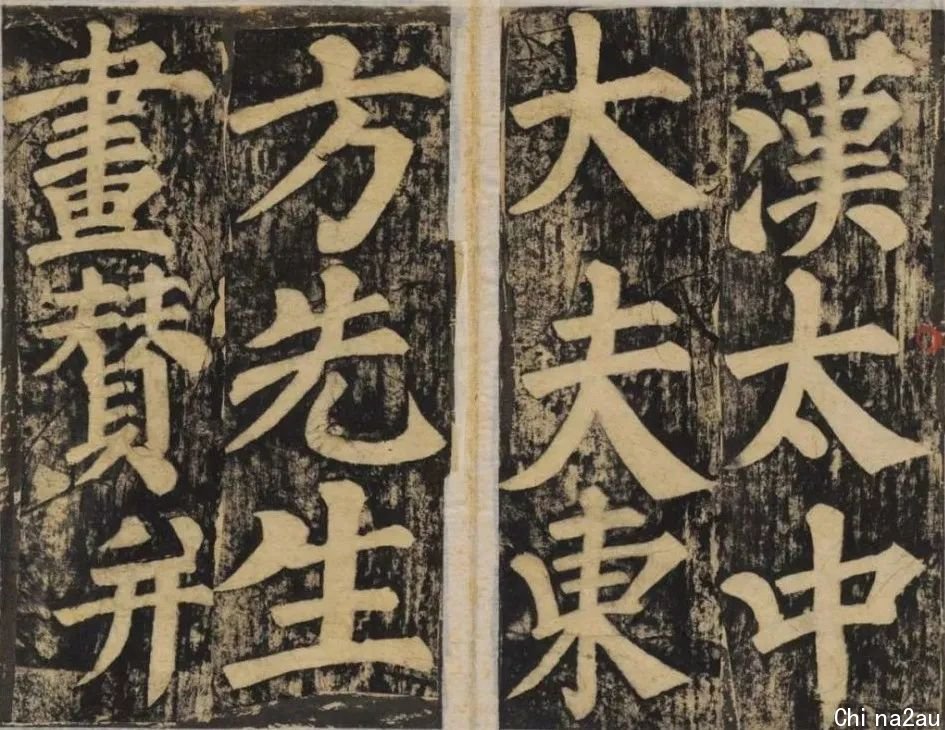 漢太中
大夫東
方先生
畫賛并
Chi na2au